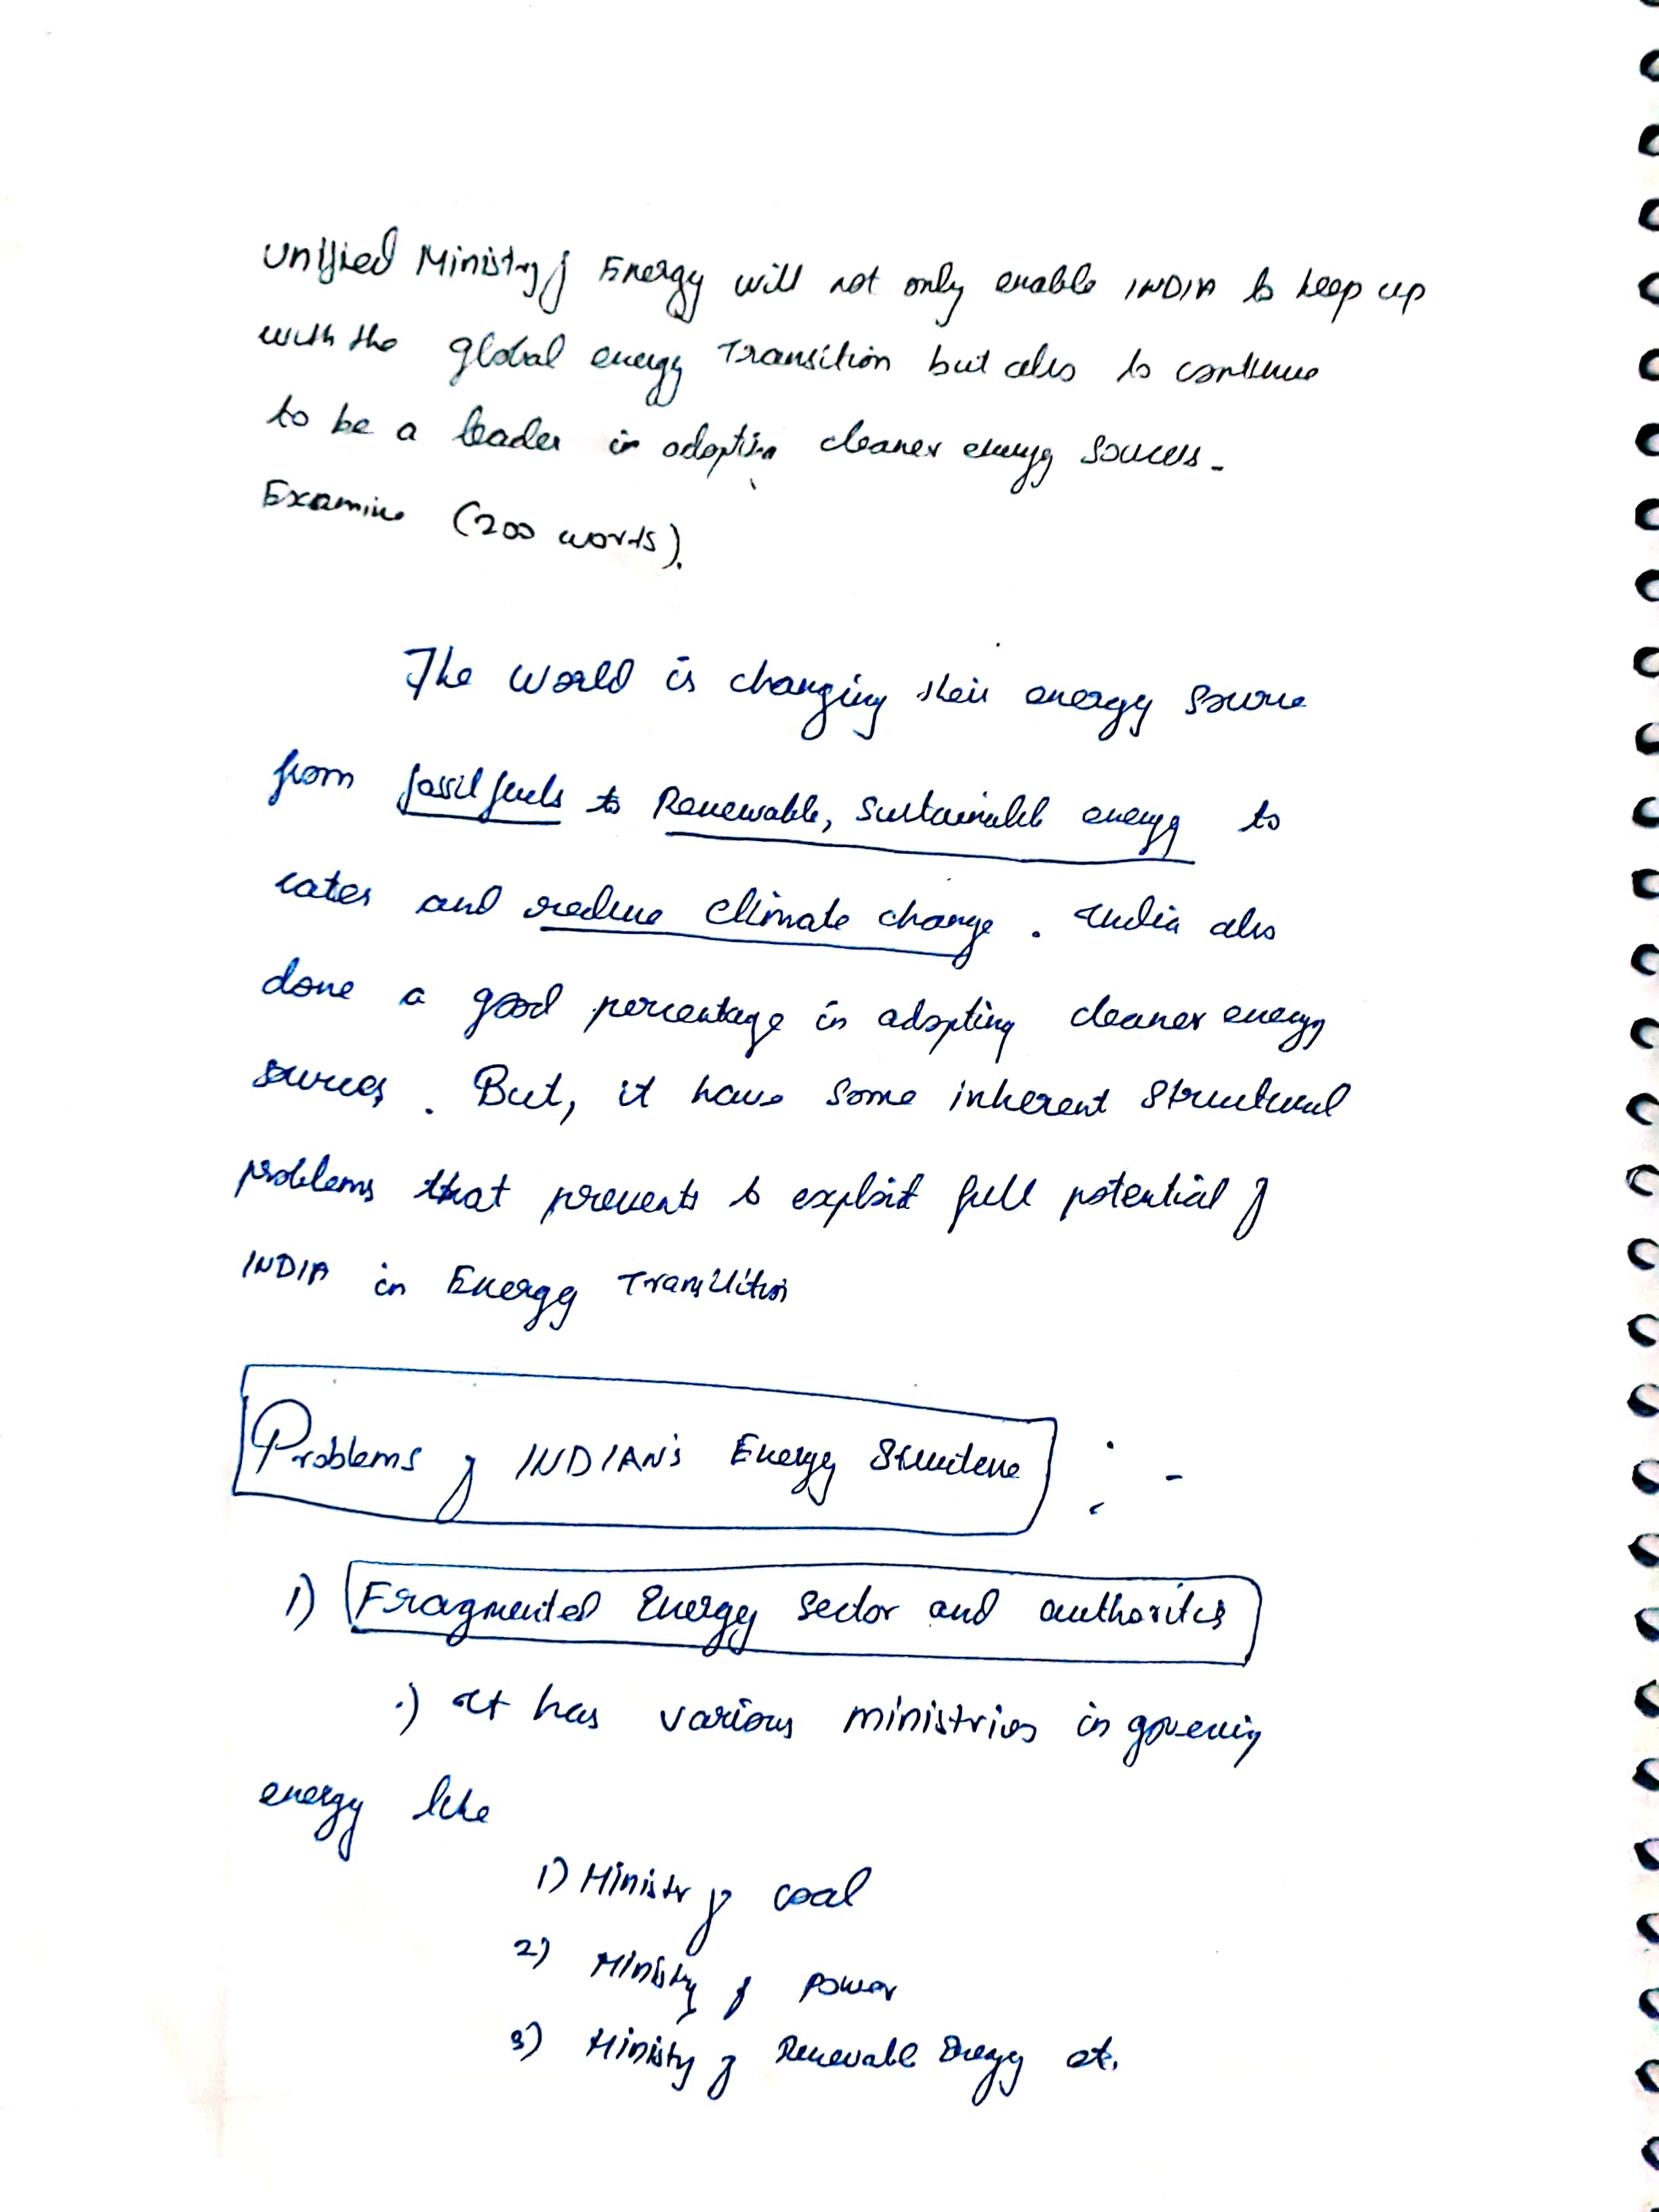 Unified Ministry of Energy will not only enable INDIA to keep up
with the global energy Transition but also to continue
to be a leader in adopting cleaner energy sources.
Examine (200 words).
The World is changing their energy source
from fossil fuels to Renewable, Sustainable energy to
cater and reduce climate change. India also
done a good percentage in adopting cleaner energy
sources. But, it have some inherent structural
problems that prevents to exploit full potential of
INDIA in Energy Transition
Problems of INDIAN's Energy Structure :-
1) Fragmented Energy sector and authorites
.) It has various ministries in governing
energy like
1) Ministry of coal
2) Ministry of Power
3) Ministry of Renewable Energy etc.